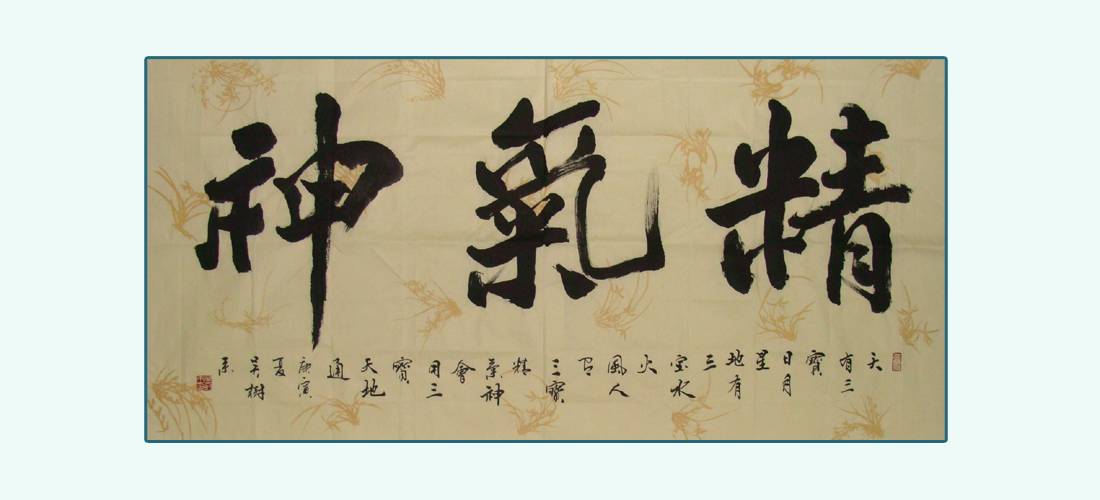 精氣神
天
有三
寶
日月
星
地有
三
宝水
火
風人
有
三寶
精
氣神
會
用三
寶
天地
通
庚寅
夏
吴樹